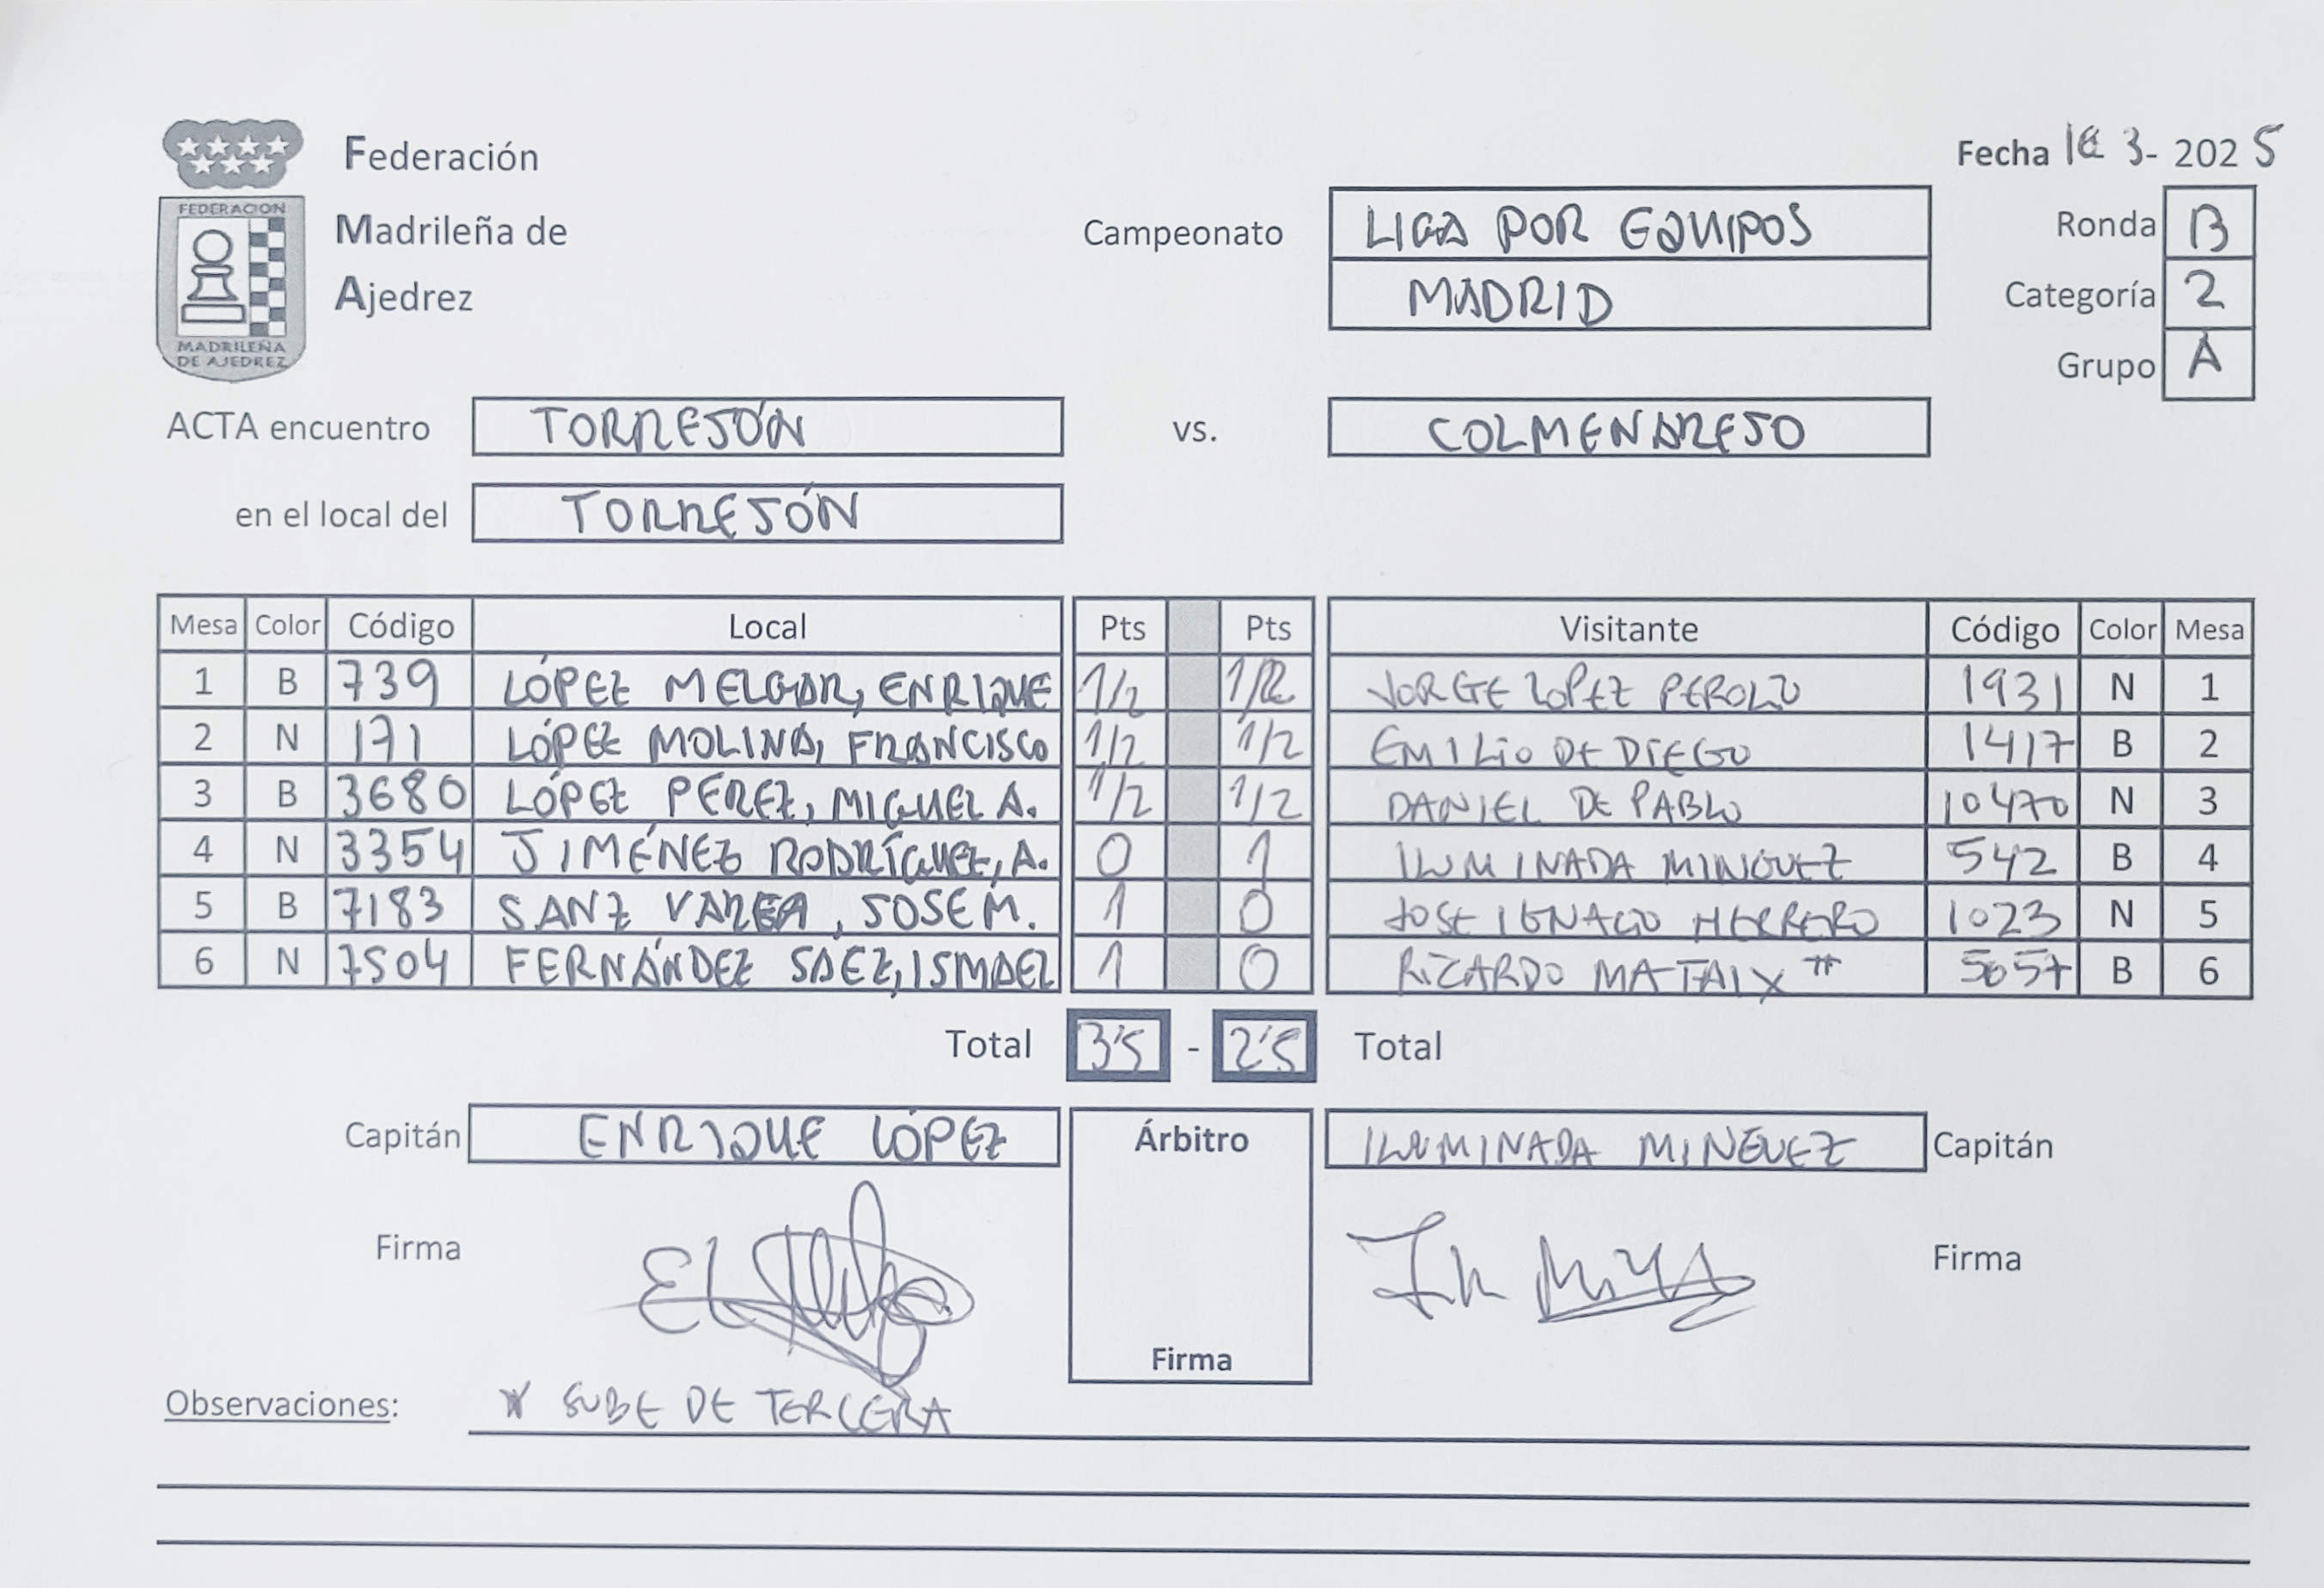 Federación
Madrileña de
Ajedrez
FEDERACION
MADRILEÑA
DE AJEDREZ
Fecha 3- 2025
Campeonato LIGA POR EQUIPOS
MADRID
Ronda
Categoría 2
Grupo A
ACTA encuentro TORREJÓN vs. COLMENAREJO
en el local del TORREJÓN
Mesa Color Código Local Pts Pts Visitante Código Color Mesa
1 B 739 LÓPEZ MELGAR, ENRIQUE 1/2 1/2 JORGE LOPEZ 1931 N 1
2 N 171 LÓPEZ MOLINA, FRANCISCO 1/2 1/2 EMILIO DE DIEGO 1417 B 2
3 B 3680 LÓPEZ PÉREZ, MIGUEL A. 1/2 1/2 DANIEL DE PABLO 10470 N 3
4 N 3354 JIMÉNEZ RODRÍGUEZ, A. 0 1 ILUMINADA MINGUEZ 542 B 4
5 B 7183 SANZ , JOSE M. 1 0 JOSE IGNACIO HERRERO 1023 N 5
6 N 7504 FERNÁNDEZ SAEZ, ISMAEL 1 0 RICARDO MATAIX * 5057 B 6
Total 3'5 - 2'5 Total
Capitán ENRIQUE LÓPEZ Árbitro ILUMINADA MINGUEZ Capitán
Firma Firma
Firma
Observaciones: * SUBE DE TERCERA